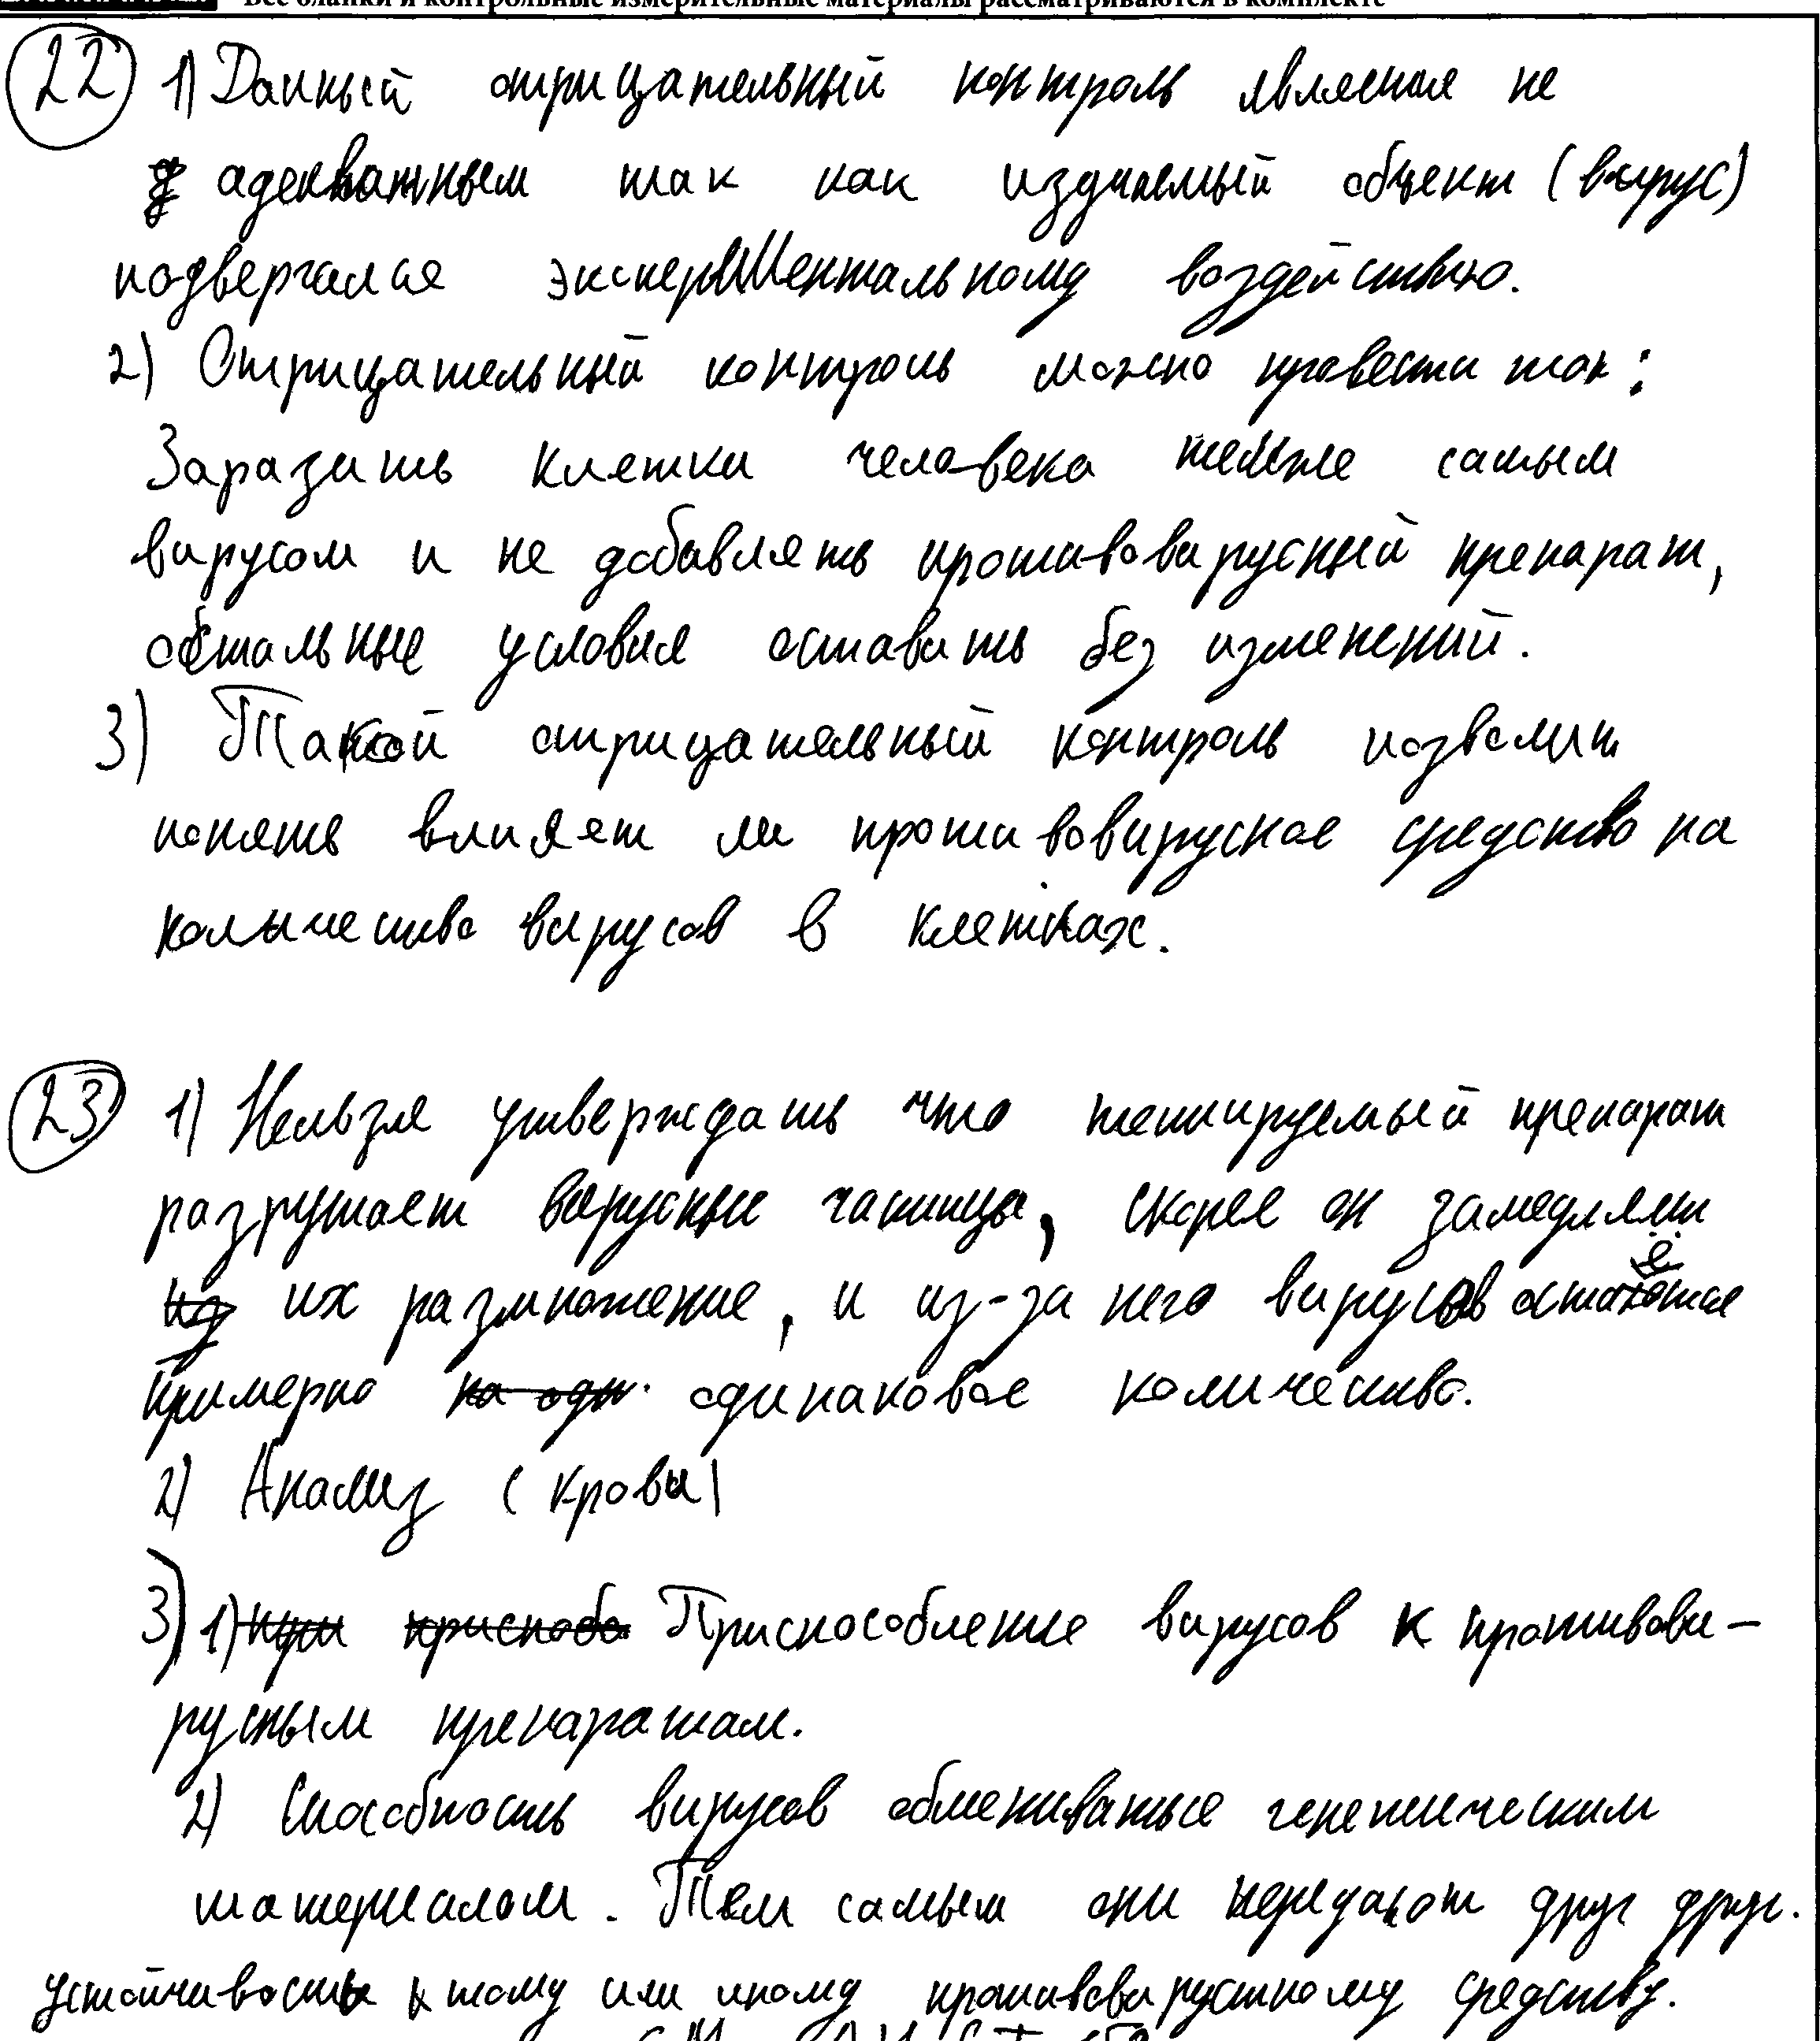 Все бланки и контрольные измерительные материалы рассматриваются в комплекте
22 1) Данный отрицательный контроль является не
адекватным так как издучаемый объект (вирус)
подвергался экспериментальному воздействию.
2) Отрицательный контроль можно провести так:
Заразить клетки человека темже самым
вирусом и не добавлять противовирусный препарат,
остальные условия оставить без изменений.
3) Такой отрицательный контроль позволит
понять влияет ли противовирусное средство на
количество вирусов в клетках.
23 1) Нельзя утверждать что тестируемый препарат
разрушает вирусные частицы, скорее он замедляет
их размножение, и из-за него вирусов остаётся
примерно одинаковое количество.
2) Анализ (крови)
3) 1) Приспособление вирусов к противови-
русным препаратам.
2) Способность вирусов обмениваться генетическим
материалом. Тем самым они передают друг друг.
устойчивость к тому или иному противовирустному средству.